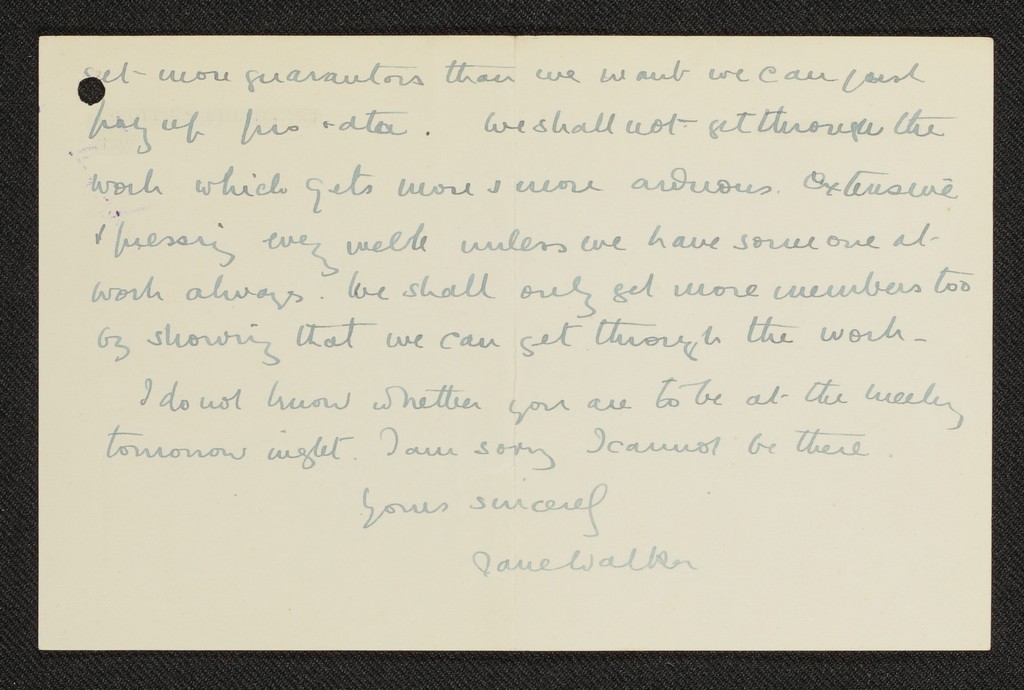 get more guarantors than we want we can just
pay up pro-rata. We shall not get through the
work which gets more & more arduous. Extensive
& pressing every week unless we have some one at
work always. We shall only get more members too
by showing that we can get through the work -
I do not know whether you are to be at the meeting
tomorrow night. I am sorry I cannot be there.
Yours sincerely
Jane Walker